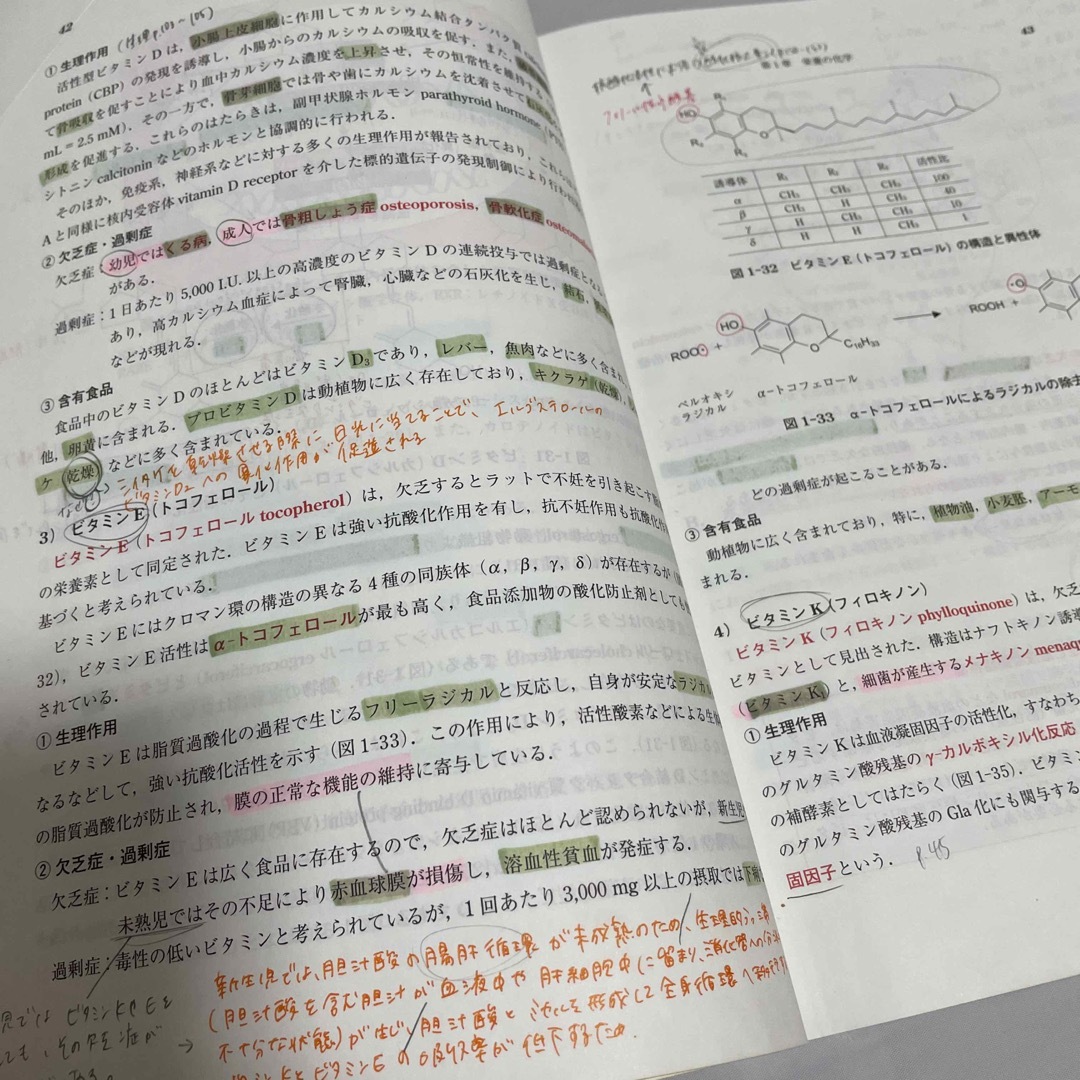 42
① 生理作用
活性型ビタミン D は，小腸上皮細胞に作用してカルシウム結合タンパク質
protein（CBP）の発現を誘導し，小腸からのカルシウムの吸収を促す．また，
て骨吸収を促すことにより血中カルシウム濃度を上昇させ，その恒常性を維持する
mL＝2.5 mM）．その一方で，骨芽細胞では骨や歯にカルシウムを沈着させて
形成を促進する．これらのはたらきは，副甲状腺ホルモン parathyroid hormone
シトニン calcitonin などのホルモンと協調的に行われる．
そのほか，免疫系，神経系などに対する多くの生理作用が報告されており，これら
A と同様に核内受容体 vitamin D receptor を介した標的遺伝子の発現制御により行われ
② 欠乏症・過剰症
欠乏症：幼児ではくる病，成人では骨粗しょう症 osteoporosis，骨軟化症
がある．
過剰症：1 日あたり 5,000 I.U. 以上の高濃度のビタミン D の連続投与では過剰症と
あり，高カルシウム血症によって腎臓，心臓などの石灰化を生じ，結石，
などが現れる．
③ 含有食品
食品中のビタミン D のほとんどはビタミン D₃ であり，レバー，魚肉などに多く含まれ
他，卵黄に含まれる．プロビタミン D は動植物に広く存在しており，キクラゲ（乾燥），
ケ（乾燥）などに多く含まれている．
シイタケを乾燥させる際に，日光に当てることで，エルゴステロールの
ビタミンD₂への異化作用が促進される
3） ビタミン E（トコフェロール）
ビタミン E（トコフェロール tocopherol）は，欠乏するとラットで不妊を引き起こす
の栄養素として同定された．ビタミン E は強い抗酸化作用を有し，抗不妊作用も抗酸化
基づくと考えられている．
ビタミン E にはクロマン環の構造の異なる 4 種の同族体（α，β，γ，δ）が存在するが
32），ビタミン E 活性は α-トコフェロールが最も高く，食品添加物の酸化防止剤としても
されている．
① 生理作用
ビタミン E は脂質過酸化の過程で生じるフリーラジカルと反応し，自身が安定なラジカル
なるなどして，強い抗酸化活性を示す（図 1-33）．この作用により，活性酸素などによる生体
の脂質過酸化が防止され，膜の正常な機能の維持に寄与している．
② 欠乏症・過剰症
欠乏症：ビタミン E は広く食品に存在するので，欠乏症はほとんど認められないが，新生児
未熟児ではその不足により赤血球膜が損傷し，溶血性貧血が発症する．
過剰症：毒性の低いビタミンと考えられているが，1 回あたり 3,000 mg 以上の摂取では下痢
新生児では，胆汁酸の腸肝循環が未成熟のため，生理的
（胆汁酸を含む胆汁が血液中や肝細胞中に留まり，消化管への分泌
不十分な状態）が生じ，胆汁酸とミセルを形成して全身循環へ
ビタミンKとビタミンEの吸収率が低下するため．
児では ビタミンKやEを
ても，その欠乏症が
→
43
第 1 章 栄養の化学
HO
R₁
R₂
R₃
O
誘導体 R₁ R₂ R₃ 活性比
α CH₃ CH₃ CH₃ 100
β CH₃ H CH₃ 40
γ H CH₃ CH₃ 10
δ H H CH₃ 1
図 1-32 ビタミン E（トコフェロール）の構造と異性体
ROO・ + HO O C₁₆H₃₃ ROOH + ・O
ペルオキシ α-トコフェロール
ラジカル
図 1-33 α-トコフェロールによるラジカルの除去
どの過剰症が起こることがある．
③ 含有食品
動植物に広く含まれており，特に，植物油，小麦胚，アーモ
まれる．
4） ビタミン K（フィロキノン）
ビタミン K（フィロキノン phylloquinone）は，欠乏
ビタミンとして見出された．構造はナフトキノン誘導
（ビタミン K₁）と，細菌が産生するメナキノン menaq
① 生理作用
ビタミン K は血液凝固因子の活性化，すなわち
のグルタミン酸残基の γ-カルボキシル化反応
の補酵素としてはたらく（図 1-35）．ビタミ
のグルタミン酸残基の Gla 化にも関与する
固因子という． P.45